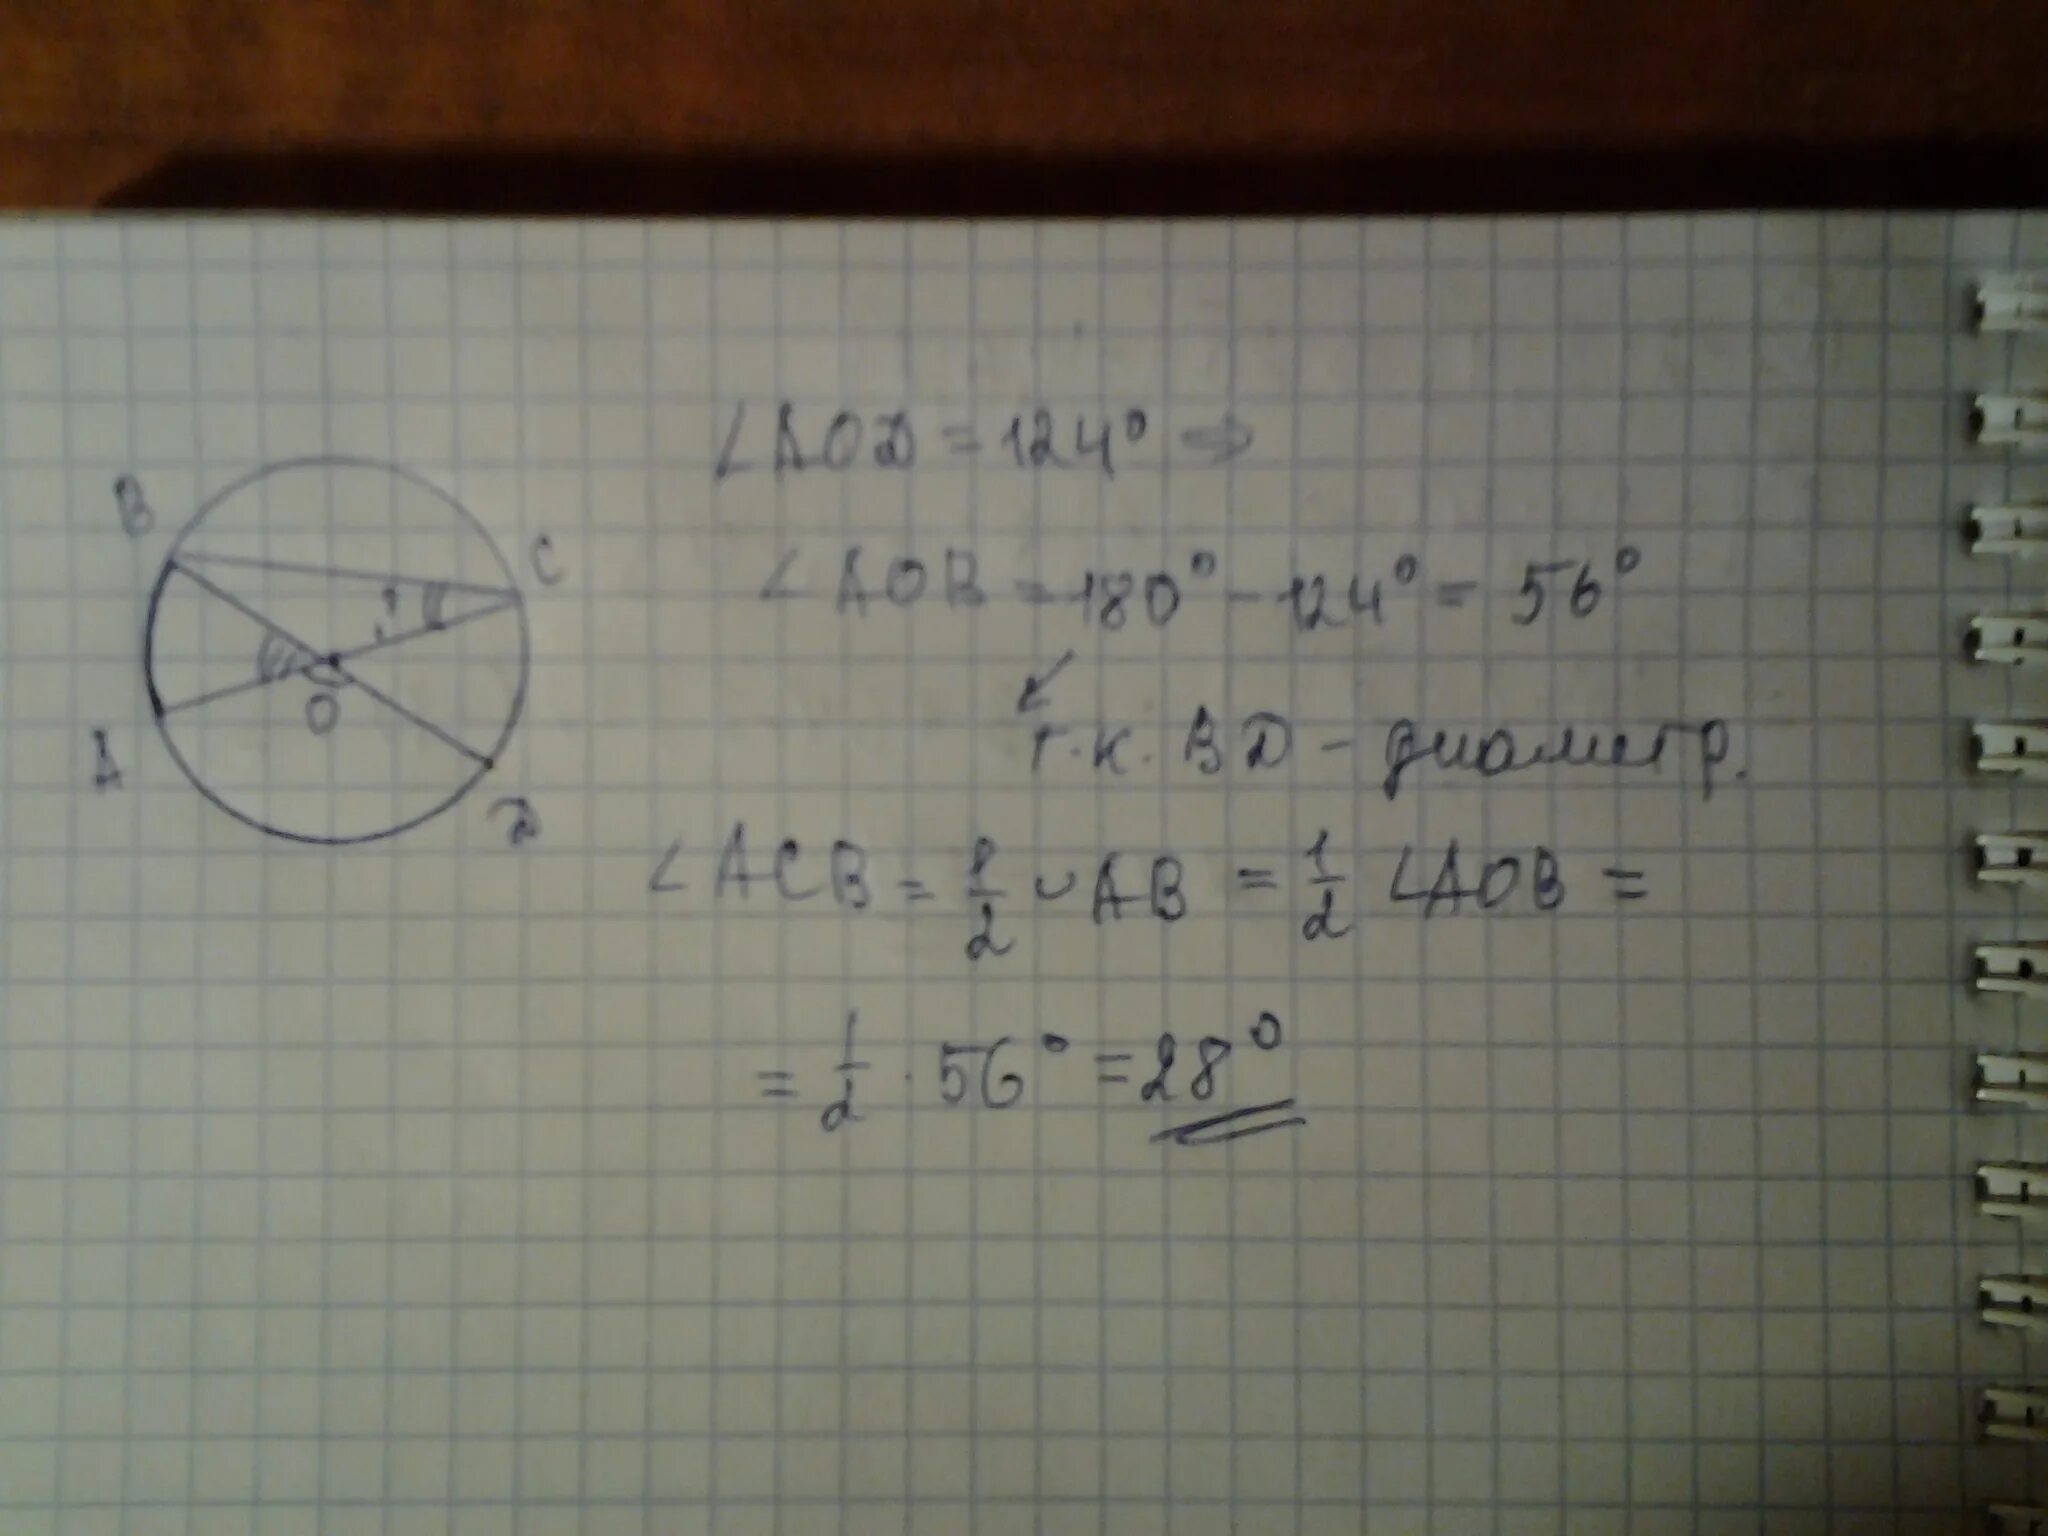 B
C
A
O
D
?
∠AOD = 124° ⇒
∠AOB = 180° - 124° = 56°
т.к. BD - диаметр.
∠ACB = 1/2 ◡AB = 1/2 ∠AOB =
= 1/2 · 56° = 28°